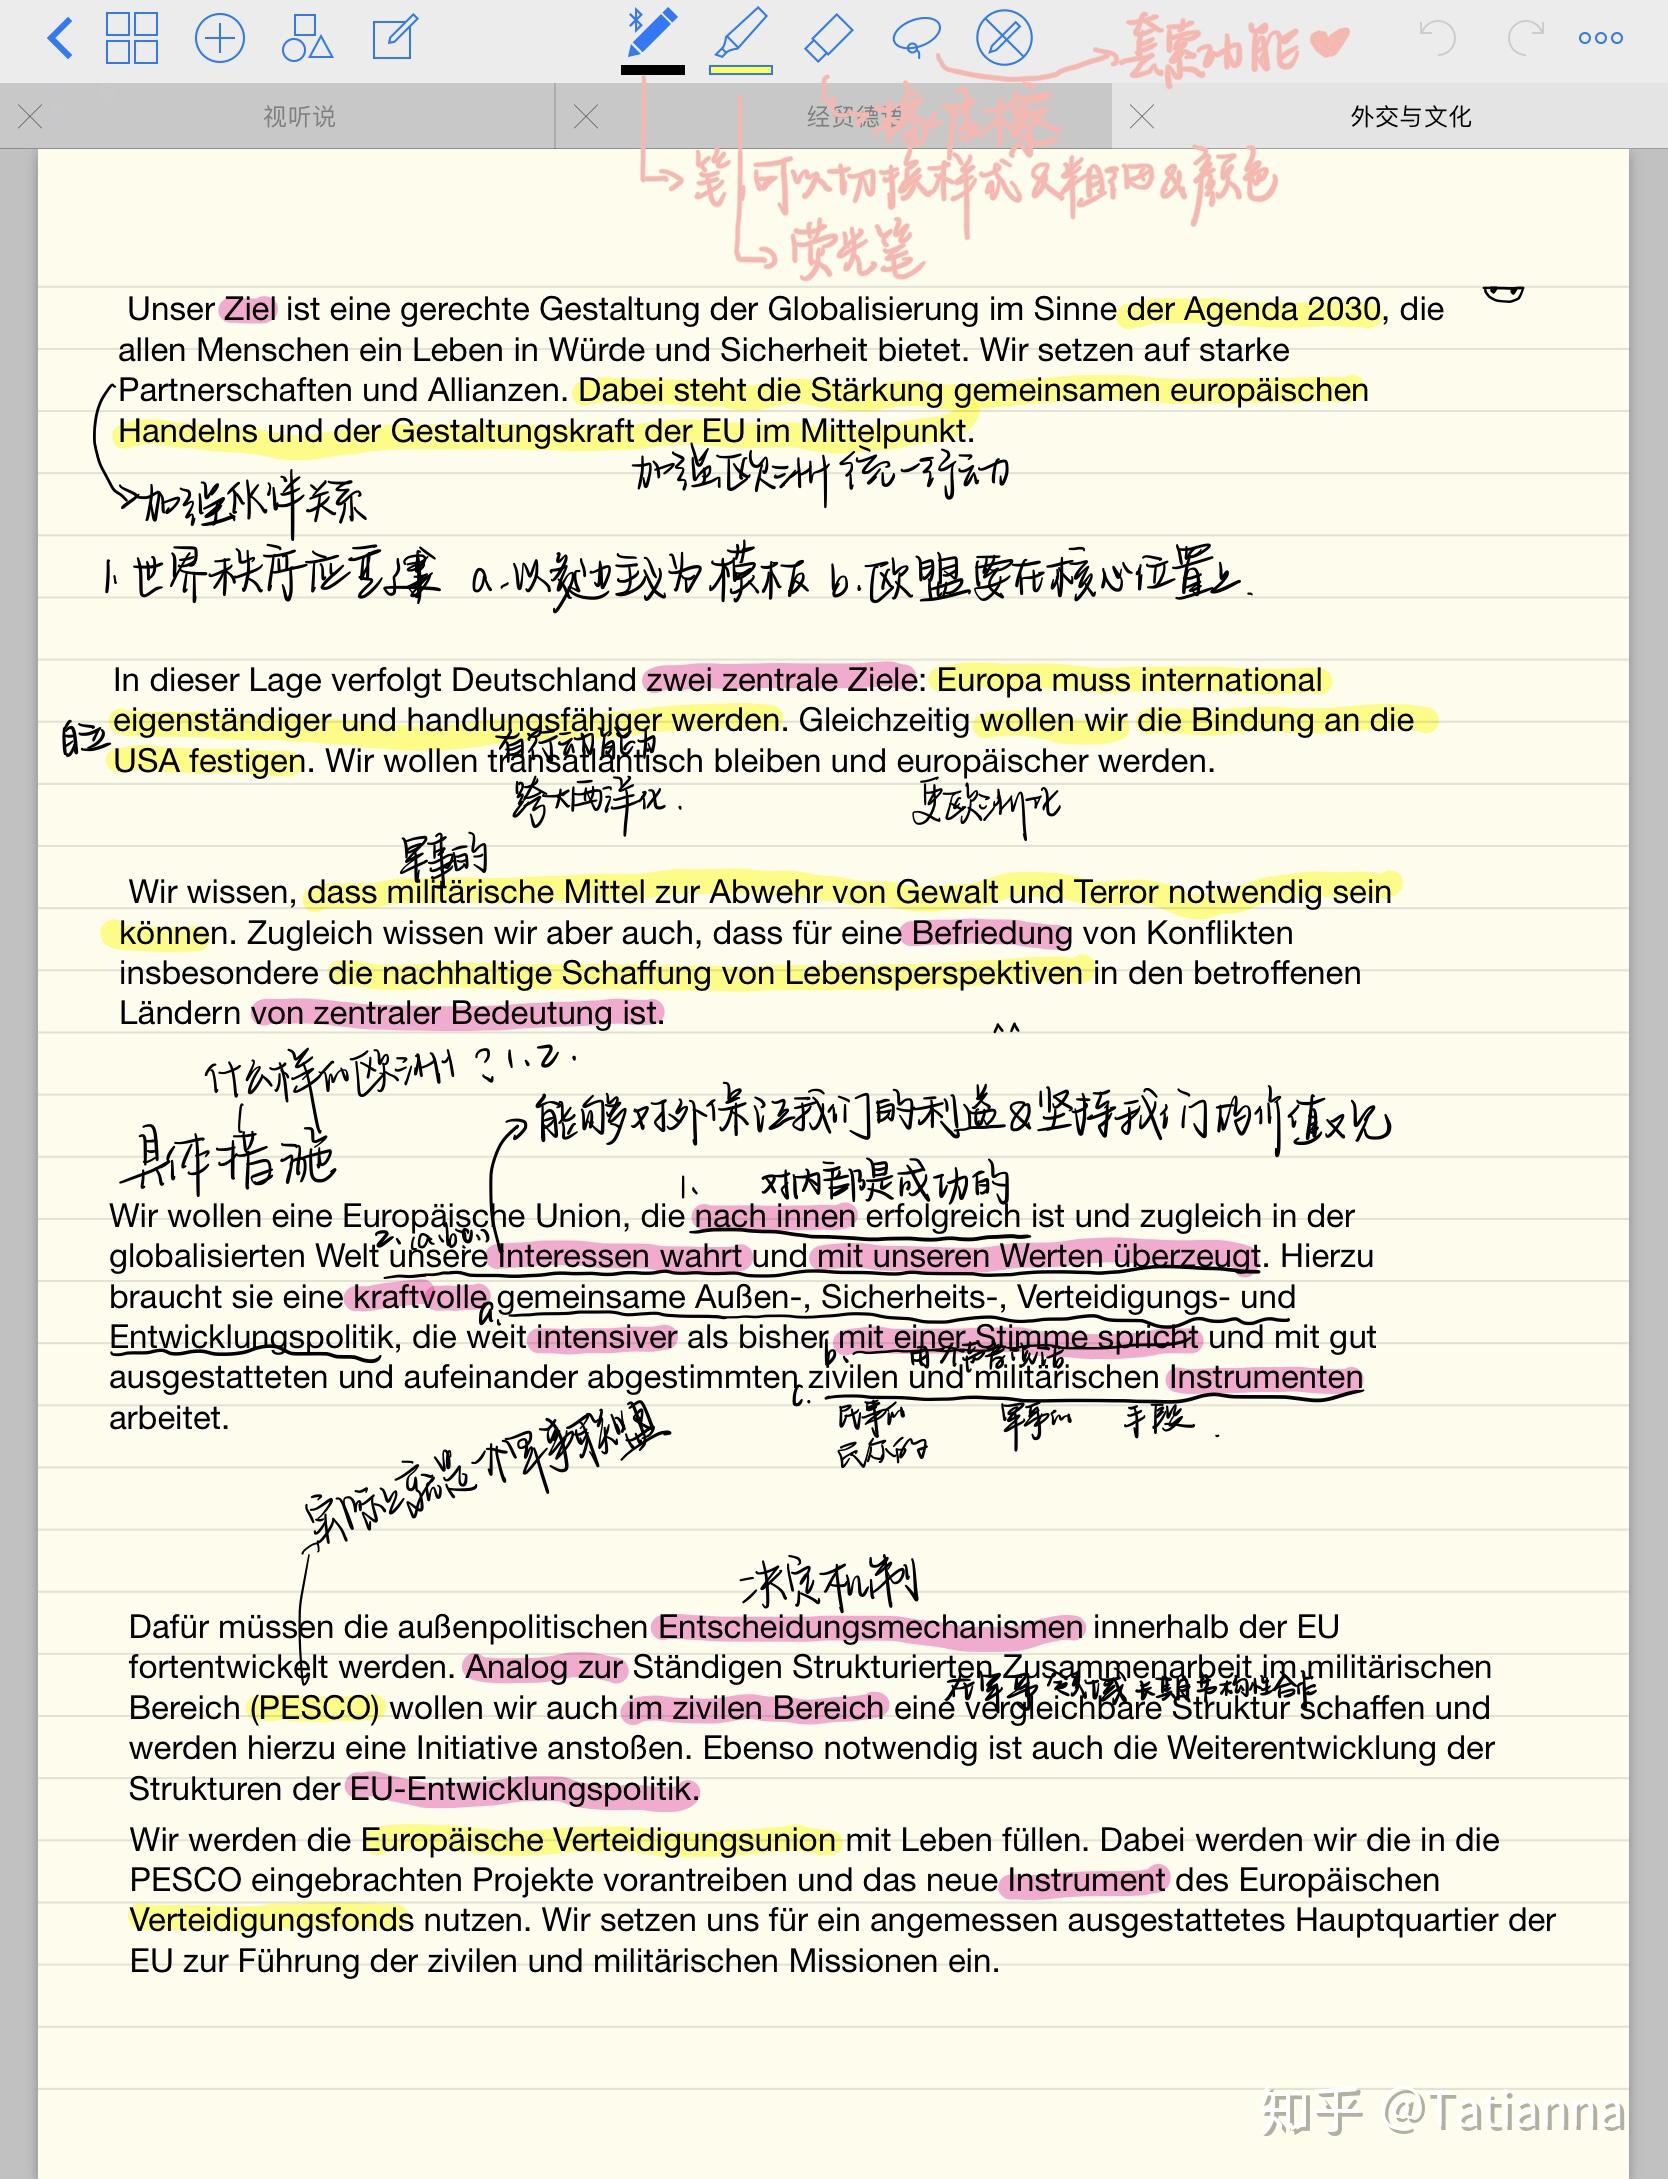 套索功能
视听说
经贸德语
外交与文化
橡皮擦
笔,可以切换样式&粗细&颜色
荧光笔
Unser Ziel ist eine gerechte Gestaltung der Globalisierung im Sinne der Agenda 2030, die
allen Menschen ein Leben in Würde und Sicherheit bietet. Wir setzen auf starke
Partnerschaften und Allianzen. Dabei steht die Stärkung gemeinsamen europäischen
Handelns und der Gestaltungskraft der EU im Mittelpunkt.
加强欧洲统一行动
加强伙伴关系
1. 世界秩序应重建 a.以多边主义为模板 b.欧盟要在核心位置上.
In dieser Lage verfolgt Deutschland zwei zentrale Ziele: Europa muss international
eigenständiger und handlungsfähiger werden. Gleichzeitig wollen wir die Bindung an die
自立
有行动能力
USA festigen. Wir wollen transatlantisch bleiben und europäischer werden.
跨大西洋化. 更欧洲化
军事的
Wir wissen, dass militärische Mittel zur Abwehr von Gewalt und Terror notwendig sein
können. Zugleich wissen wir aber auch, dass für eine Befriedung von Konflikten
insbesondere die nachhaltige Schaffung von Lebensperspektiven in den betroffenen
Ländern von zentraler Bedeutung ist.
什么样的欧洲?1.2.
能够对外保证我们的利益&坚持我们的价值观
具体措施
1. 对内部是成功的
Wir wollen eine Europäische Union, die nach innen erfolgreich ist und zugleich in der
2.
globalisierten Welt unsere Interessen wahrt und mit unseren Werten überzeugt. Hierzu
braucht sie eine kraftvolle gemeinsame Außen-, Sicherheits-, Verteidigungs- und
a.
Entwicklungspolitik, die weit intensiver als bisher mit einer Stimme spricht und mit gut
b. 用一个声音说话
ausgestatteten und aufeinander abgestimmten zivilen und militärischen Instrumenten
c.
arbeitet.
民事的 军事的 手段.
民众的
实际上就是一个军事联盟
决定机制
Dafür müssen die außenpolitischen Entscheidungsmechanismen innerhalb der EU
fortentwickelt werden. Analog zur Ständigen Strukturierten Zusammenarbeit im militärischen
在军事领域长期结构性合作
Bereich (PESCO) wollen wir auch im zivilen Bereich eine vergleichbare Struktur schaffen und
werden hierzu eine Initiative anstoßen. Ebenso notwendig ist auch die Weiterentwicklung der
Strukturen der EU-Entwicklungspolitik.
Wir werden die Europäische Verteidigungsunion mit Leben füllen. Dabei werden wir die in die
PESCO eingebrachten Projekte vorantreiben und das neue Instrument des Europäischen
Verteidigungsfonds nutzen. Wir setzen uns für ein angemessen ausgestattetes Hauptquartier der
EU zur Führung der zivilen und militärischen Missionen ein.
知乎 @Tatianna